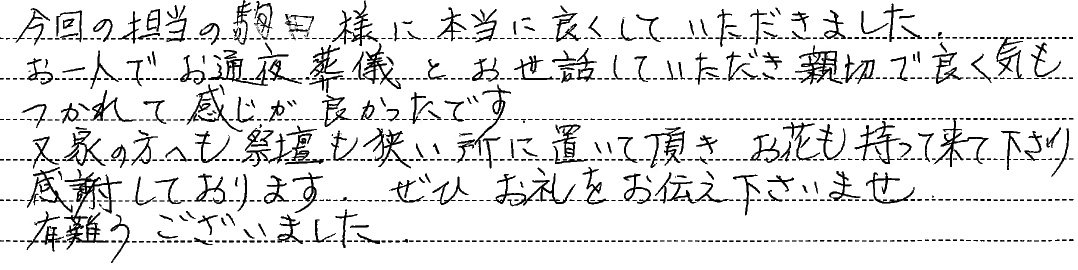 今回の担当の駒田様に本当に良くしていただきました.
お一人でお通夜葬儀とお世話していただき親切で良く気も
つかれて感じが良かったです.
又家の方へも祭壇も狭い所に置いて頂きお花も持って来て下さり
感謝しております. ぜひお礼をお伝え下さいませ.
有難うございました.